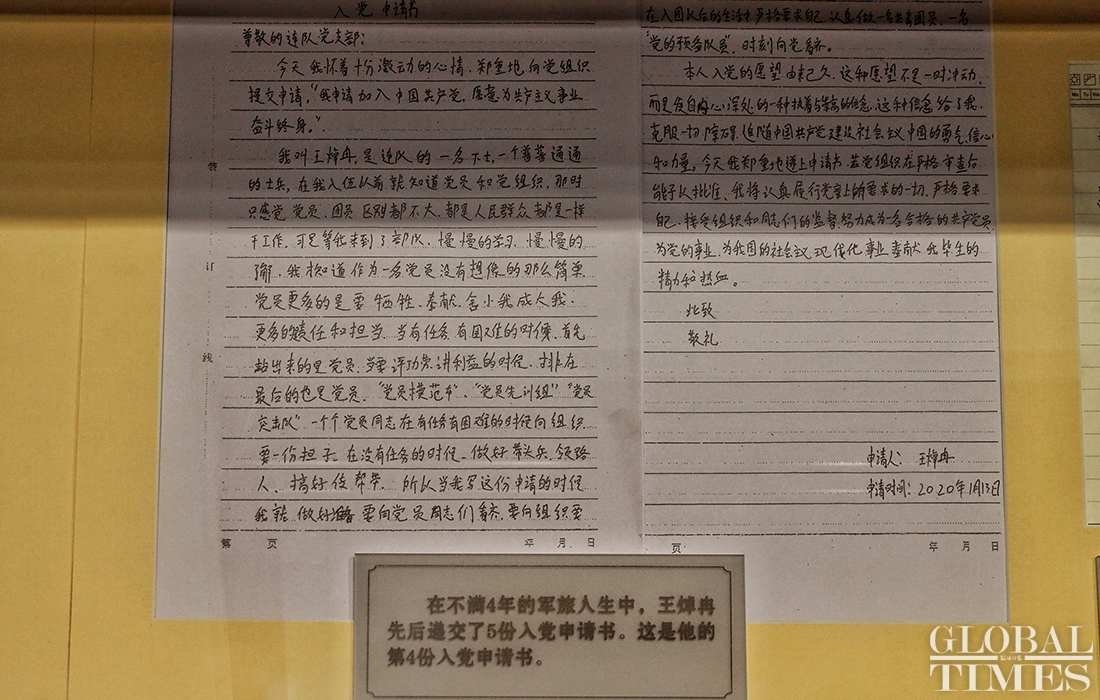 入党申请书
尊敬的连队党支部：
今天我怀着十分激动的心情，郑重地向党组织
提交申请，“我申请加入中国共产党，愿意为共产主义事业
奋斗终身。”
我叫王焯冉，是连队的一名下士，一个普普通通
的士兵，在我入伍以前就知道党员和党组织，那时
只感觉党员、团员区别都不大，都是人民群众都是一样
干工作，可是等我来到了部队，慢慢的学习，慢慢的
了解，我才知道作为一名党员没有想像的那么简单
党员更多的是要牺牲、奉献、舍小我成大我：
更多的责任和担当，当有任务有困难的时候，首先
站出来的是党员，当要评功劳讲利益的时候，排在
最后的也是党员，“党员模范书”、“党员先训组”“党员
突击队”一个个党员同志在有任务有困难的时候向组织
要一份担子，在没有任务的时候，做好带头兵、领路
人、搞好传帮带，所以当我写这份申请的时候
我就做好准备要向党员同志们看齐，要向组织要
第 页 年 月 日
装
订
线
在入团以后的生活中严格要求自己，认真做一名共青团员，一名
“党的预备队员”，时刻向党看齐。
本人入党的愿望由来已久，这种愿望不是一时冲动，
而是发自内心深处的一种执着与崇高的信念，这种信念给了我
克服一切障碍、追随中国共产党建设社会主义中国的勇气、信心
和力量。今天我郑重地递上申请书，若党组织在严格审查后
能予以批准，我将认真履行党章上所要求的一切，严格要求
自己，接受组织和同志们的监督，努力成为一名合格的共产党员
为党的事业，为我国的社会主义现代化事业奉献我毕生的
精力和热血。
此致
敬礼
申请人：王焯冉
申请时间：2020年1月13日
页 年 月 日
在不满4年的军旅人生中，王焯冉
先后递交了5份入党申请书。这是他的
第4份入党申请书。
GLOBAL
TIMES